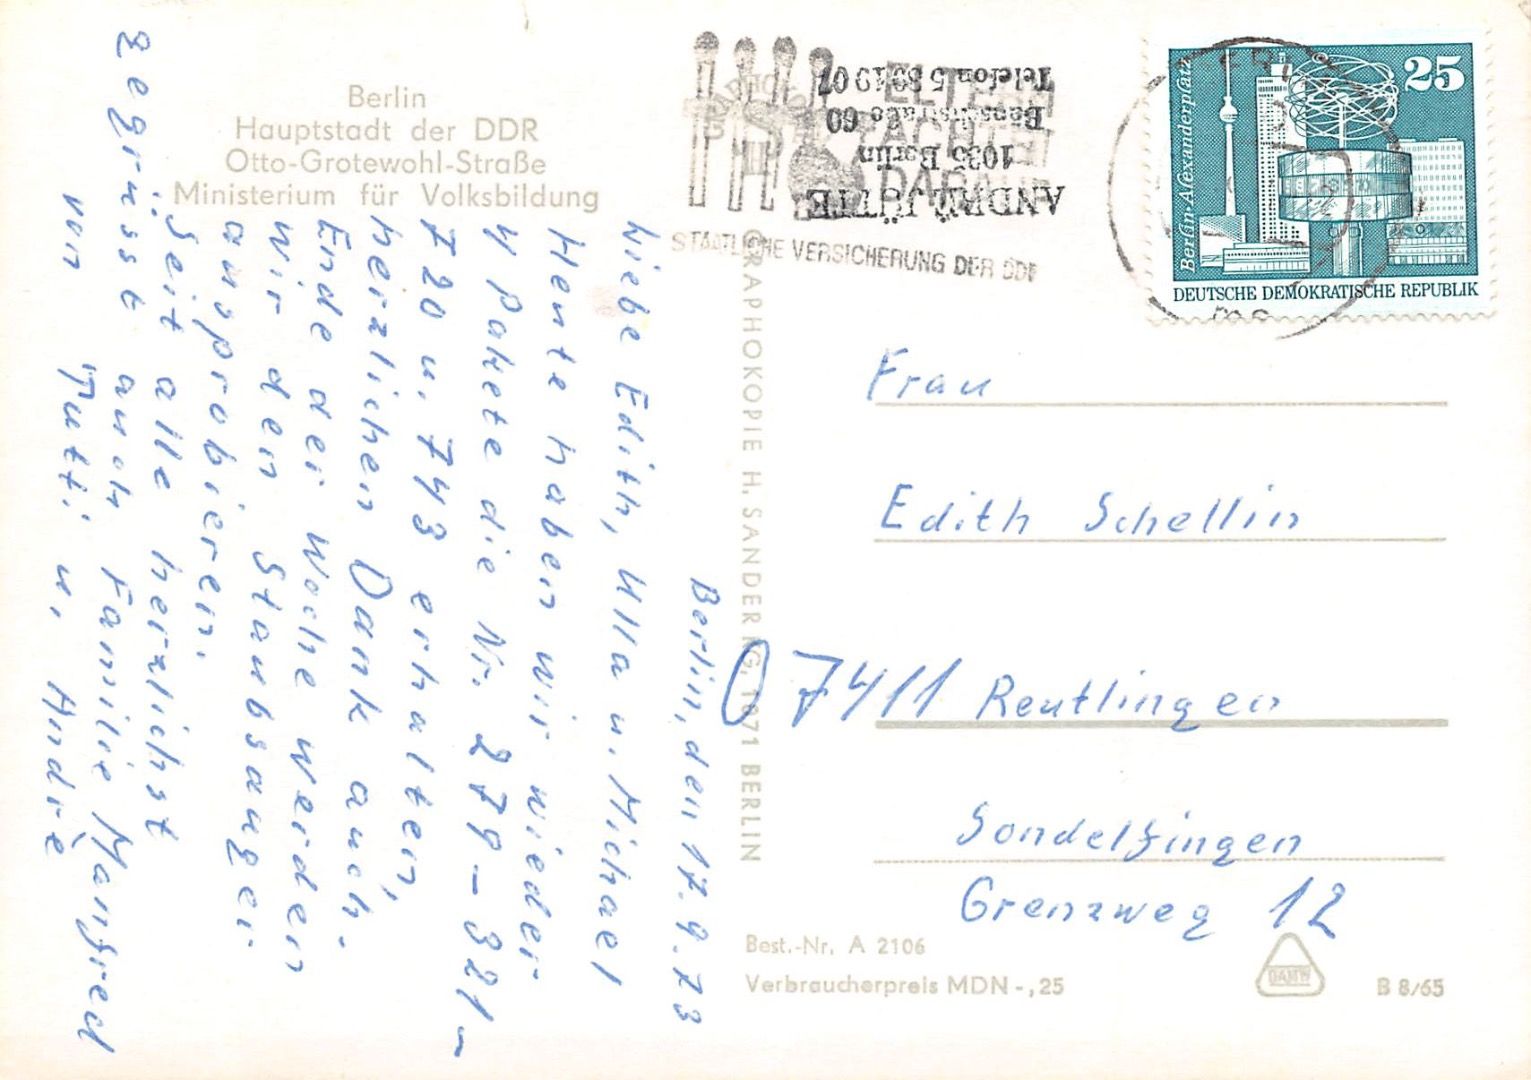 Berlin
Hauptstadt der DDR
Otto-Grotewohl-Straße
Ministerium für Volksbildung
Berlin, den 17.9.73
Liebe Edith, Ulla u. Michael
Heute haben wir wieder
4 Pakete die Nr. 279 - 321 -
720 u. 743 erhalten,
herzlichen Dank auch.
Ende der Woche werden
wir den Staubsauger
ausprobieren.
Seit alle herzlichst
gegrüsst auch Familie Manfred
von Tutti u. Andrè
GRAPHOKOPIE H. SANDER KG, 1071 BERLIN
ELTERN
ACHTET
DARAUF
STAATLICHE VERSICHERUNG DER DDR
ANDRÉ JÜTTE
1035 Berlin
60
Telefon 5 89 19 07
25
Berlin-Alexanderplatz
DEUTSCHE DEMOKRATISCHE REPUBLIK
Frau
Edith Schellin
7411 Reutlingen
Sondelfingen
Grenzweg 12
Best.-Nr. A 2106
Verbraucherpreis MDN -,25
DAMW
B 8/65